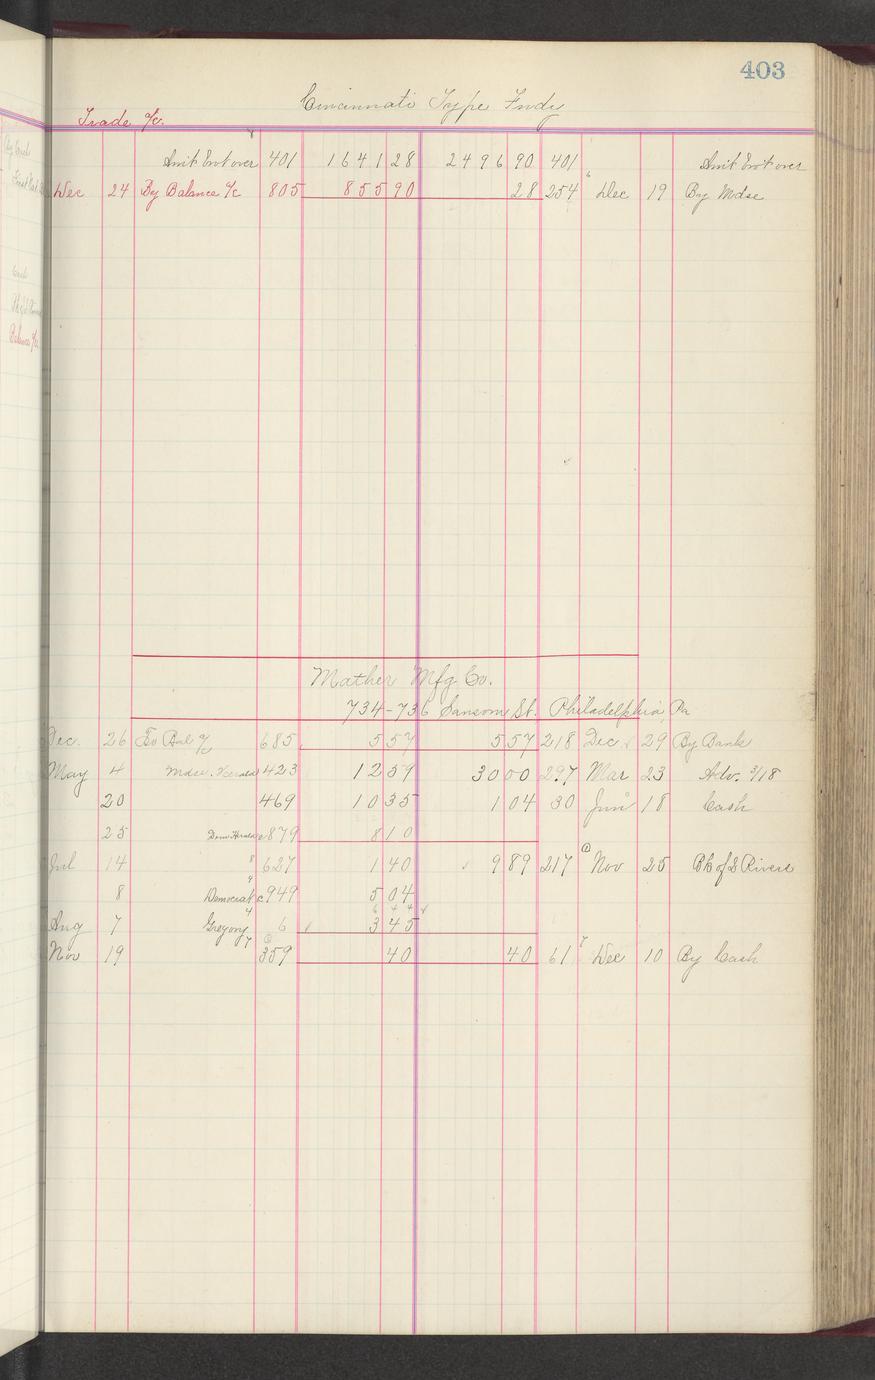 403
Cincinnati Type Fndy
Trade a/c.
Amt Brot over 401 1641 28 2496 90 401 Amt Brot over
Dec 24 By Balance a/c 805 855 90 28 254 Dec 19 By Mdse
Mather Mfg Co.
734-736 Sansom St. Philadelphia, Pa
Dec. 26 To Bal a/c 685 5 57 5 57 218 Dec 29 By Bank
May 4 Mdse. Herald 423 12 59 30 00 297 Mar 23 Adv. 3/18
20 469 10 35 1 04 30 Jun 18 Cash
25 Dem Herald 879 8 10
Jul 14 8 627 1 40 9 89 217 Nov 25 Bk of 2 Rivers
8 Democrat 949 5 04
Aug 7 Gregory 6 3 45
Nov 19 359 40 40 61 Dec 10 By Cash